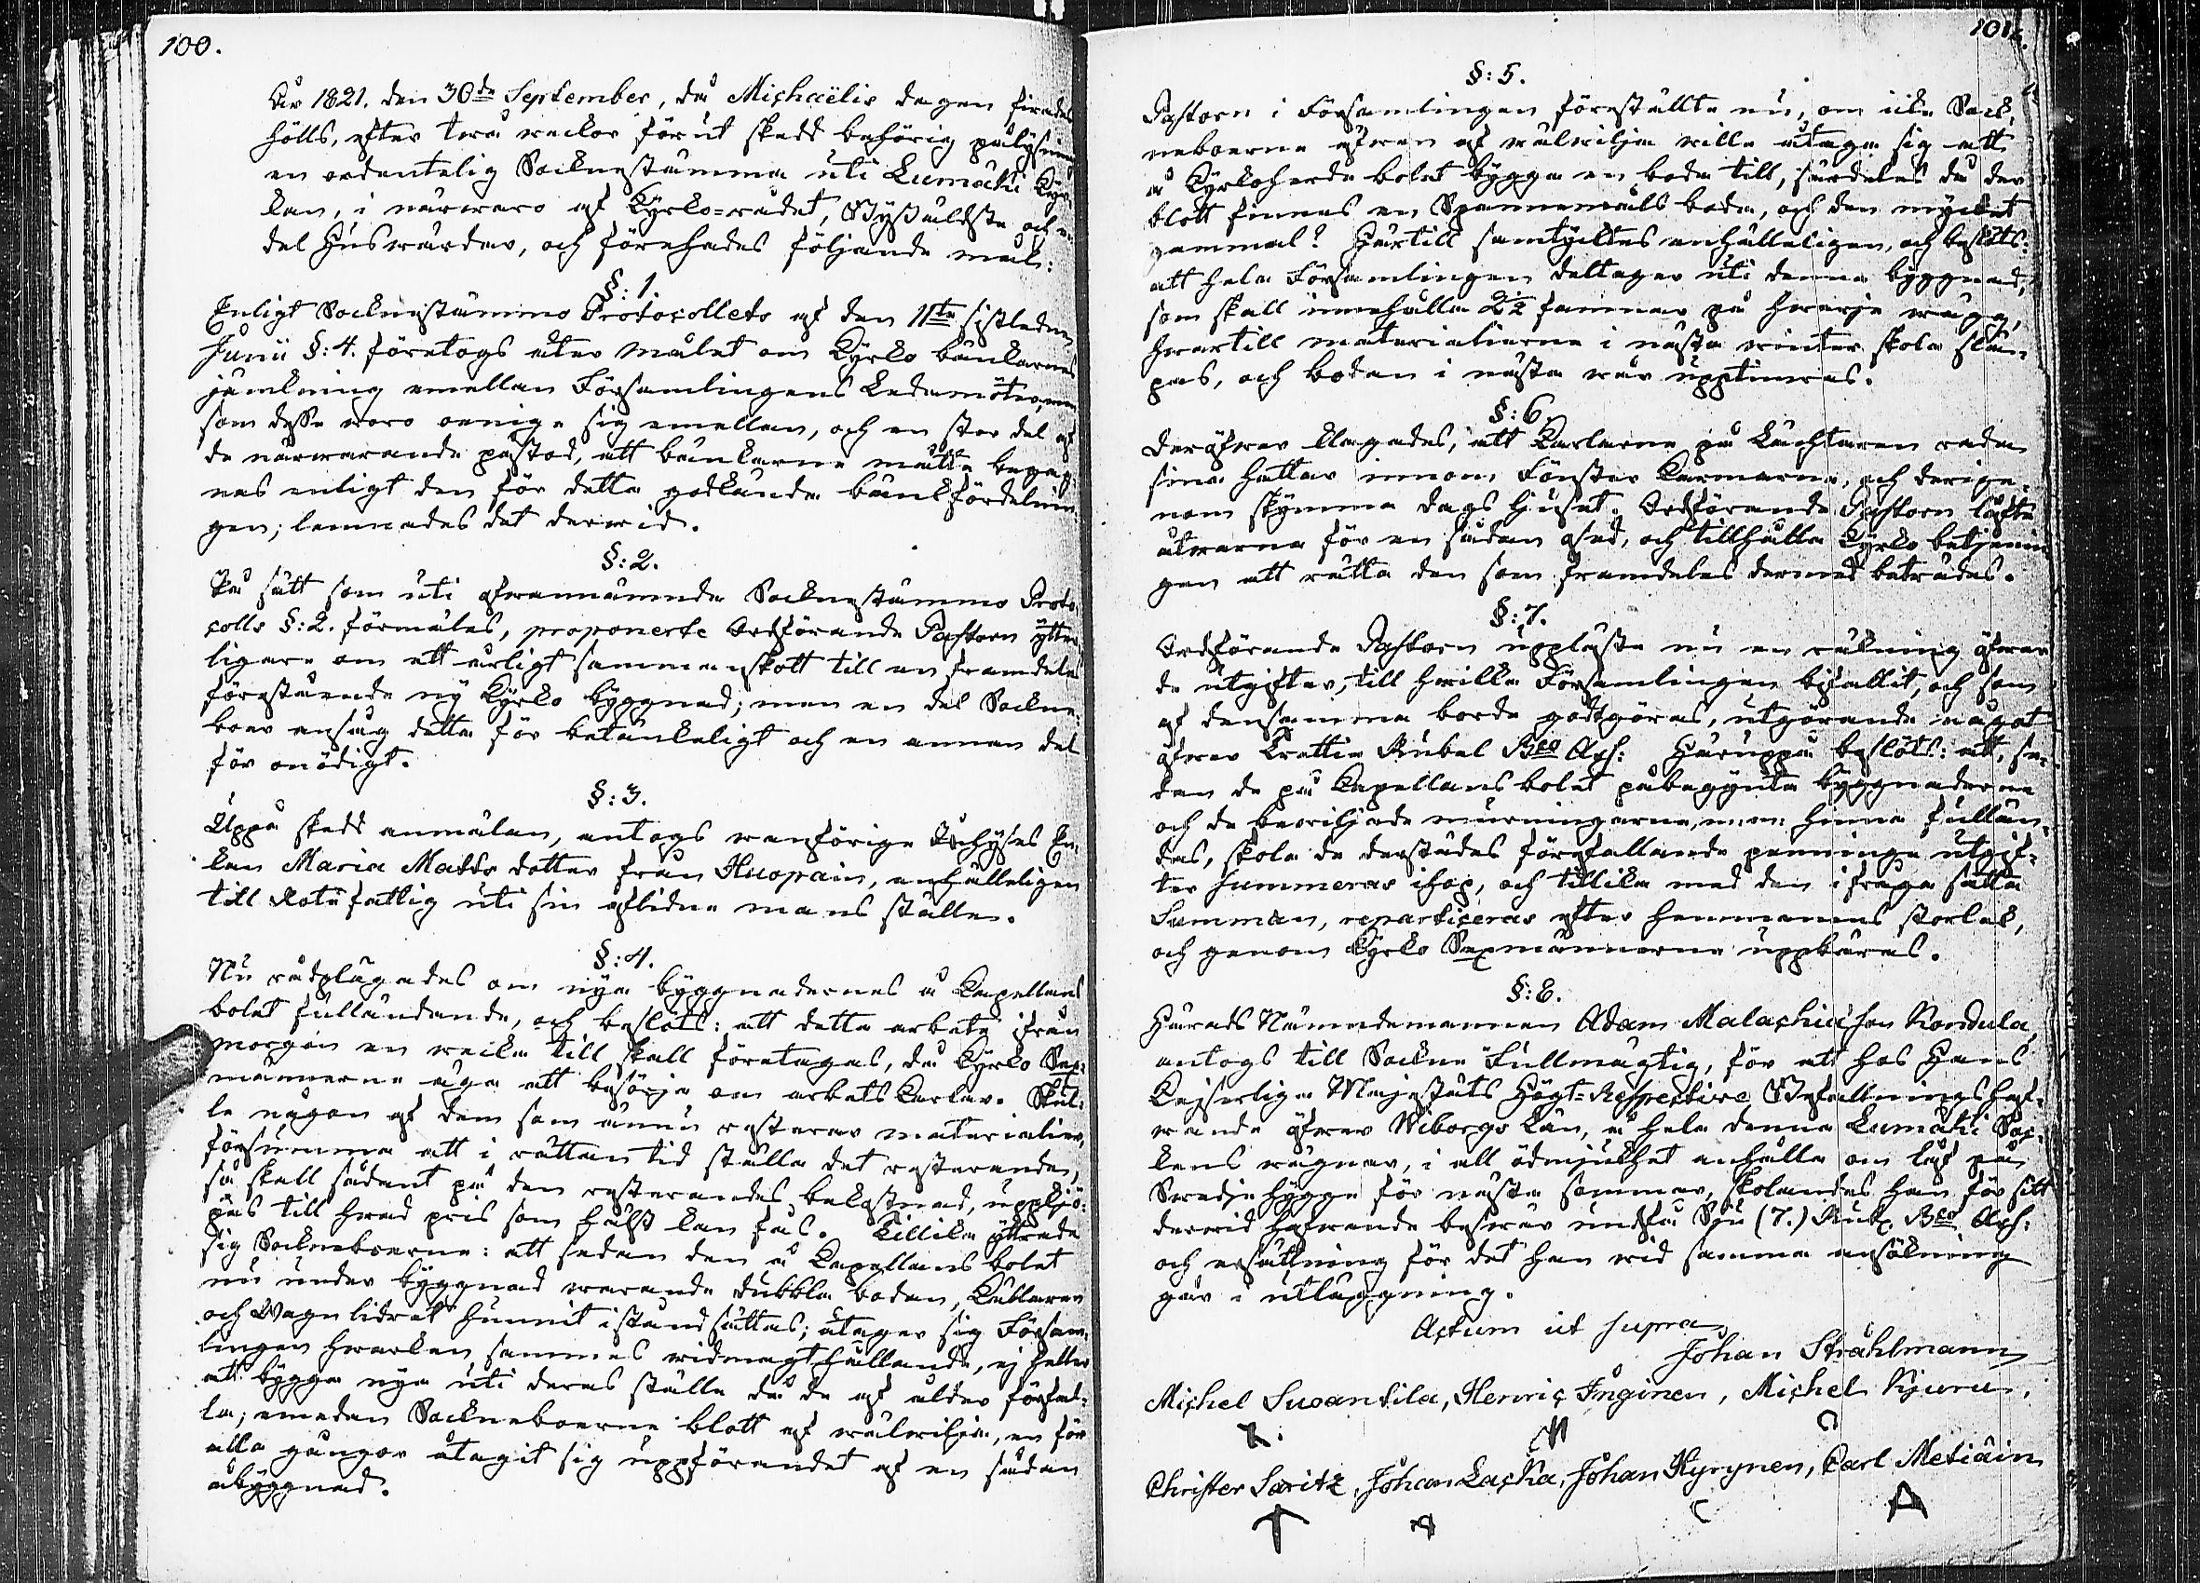 100.
År 1821. den 30de September, då Michaëlis dagen firades
hölls, efter twå weckor förut skedd behörig pålysning
en ordentelig Socknestämma uti Lumäki Kyr-
kan, i närwaro af Kyrko=rådet, Byåldste och en
del Huswärdar, och förehades följande mål:
§: 1.
Enligt Sockenstämmo Protocollets af den 11te sistledne
Junii §: 4. företogs åter målet om Kyrko bänkarnes
jämkning emellan Församlingens Ledamöter, men
som desse woro oenige sig emellan, och en stor del af
de närwarande påstod, att bänkarne måtte begag-
nas enligt den för detta godkände bänkfördelnin-
gen; lemnades det derwid.
§: 2.
På sätt som uti ofwannämnde Socknestämmo Proto-
colls §: 2. förmäles, proponerte Ordförande Pastorn ytter-
ligare om ett årligt sammanskott till en framdeles
förestående ny Kyrko byggnad; men en del Sockne-
boer ansåg detta för betänkeligt och en annan del
för onödigt.
§: 3.
Uppå skedd anmälan, antogs wanförige Inhyses En-
kan Maria Matts dotter från Huopain, enhälleligen
till Rotefattig uti sin aflidne mans ställe.
§: 4.
Nu rådplägades om nya byggnadernes å Kapellans
bolet fulländande, och beslöts: att detta arbete ifrån
morgon en wecka till skall företagas, då Kyrko Sex-
männerne äga att besörja om arbets Karlar. Skul-
le någon af dem som ännu resterar materialier,
försumma att i rättan tid ställa det resterande,
så skall sådant på den resterandes bekostnad, uppkjö-
pas till hwad pris som hälst kan fås. Tillika yttrade
sig Sockneboerne: att sedan den å Kapellans bolet
nu under byggnad warande dubbla boden, Källaren
och Wagnlidret hunnit iståndsättas; åtager sig Försam-
lingen hwarken sammes widmagthållande, ej heller
att bygga nya uti deras ställe då de af ålder förfal-
la; emedan Sockneboerne blott af wälwilja, en för
alla gångor åtagit sig uppförandet af en sådan
åbyggnad.
101.
§: 5.
Pastorn i Församlingen föreställte nu, om icke Sock-
neboerne äfwen af wälwilja wille åtaga sig att
å Kyrkoherde bolet bygga en bode till, särdeles då der
blott finnes en Spannemåls bode, och den mycket
gammal? Härtill samtycktes enhälleligen, och beslöts:
att hela Församlingen deltager uti denna byggnad,
som skall innehålla 2½ famnar på hwarje wägg,
hwartill materialierne i nästa winter skola släp-
pas, och boden i nästa wår upptimras.
§: 6.
Deröfwer klagades, att Karlarne på Läcktaren rada
sina hattar innom Fönster Karmarne, och derige-
nom skymma dags ljuset. Ordförande Pastorn löfte
utwarna för en sådan osed, och tillhålla Kyrko betjenin-
gen att rätta den som framdeles dermed beträdes.
§: 7.
Ordförande Pastorn uppläste nu en räkning öfwer
de utgifter, till hwilka Församlingen bifallit, och som
af densamma borde godtgöras, utgörande något
öfwer Trettio Rubel Bco Ass: Häruppå beslöts: att, se-
dan de på Kapellans bolet påbegynta byggnaderne
och de bewiljade murningarne, m:m: hunne fullän-
das, skola de derstädes förefallande penninge utgif-
ter summeras ihop, och tillika med den ifråga satta
Summan, reparticeras efter hemmanens storlek,
och genom Kyrko Sexmännerne uppbäras.
§: 8.
Härads Nämndemannen Adam Malachiæson Kondula,
antogs till Sockne Fullmägtig, för att hos Hans
Kejserliga Majestäts Högt=Respective Befallningshaf-
wande öfwer Wiborgs Län, å hela denne Lumäki Soc-
kens wägnar, i all ödmjukhet anhålla om lof på
Swedje hygge för nästa sommar, skolandes han för sitt
derwid hafwande beswär undfå Sju (7.) Rub. Bco Ass:
och ersättning för det han wid samma ansökning
gör i utläggning.
Actum ut supra
Johan Stråhlmann
Michel Suoantila, Henric Inginen, Michel Kjuru,
Christer Saritz, Johan Lacka, Johan Hyrynen, Carl Metiäin